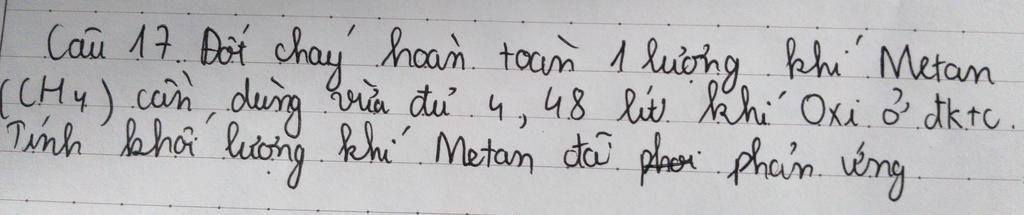 Câu 17. Đốt cháy hoàn toàn 1 lượng khí Metan
(CH4) cần dùng vừa đủ 4,48 lít khí Oxi ở đktc.
Tính khối lượng khí Metan đã phản ứng